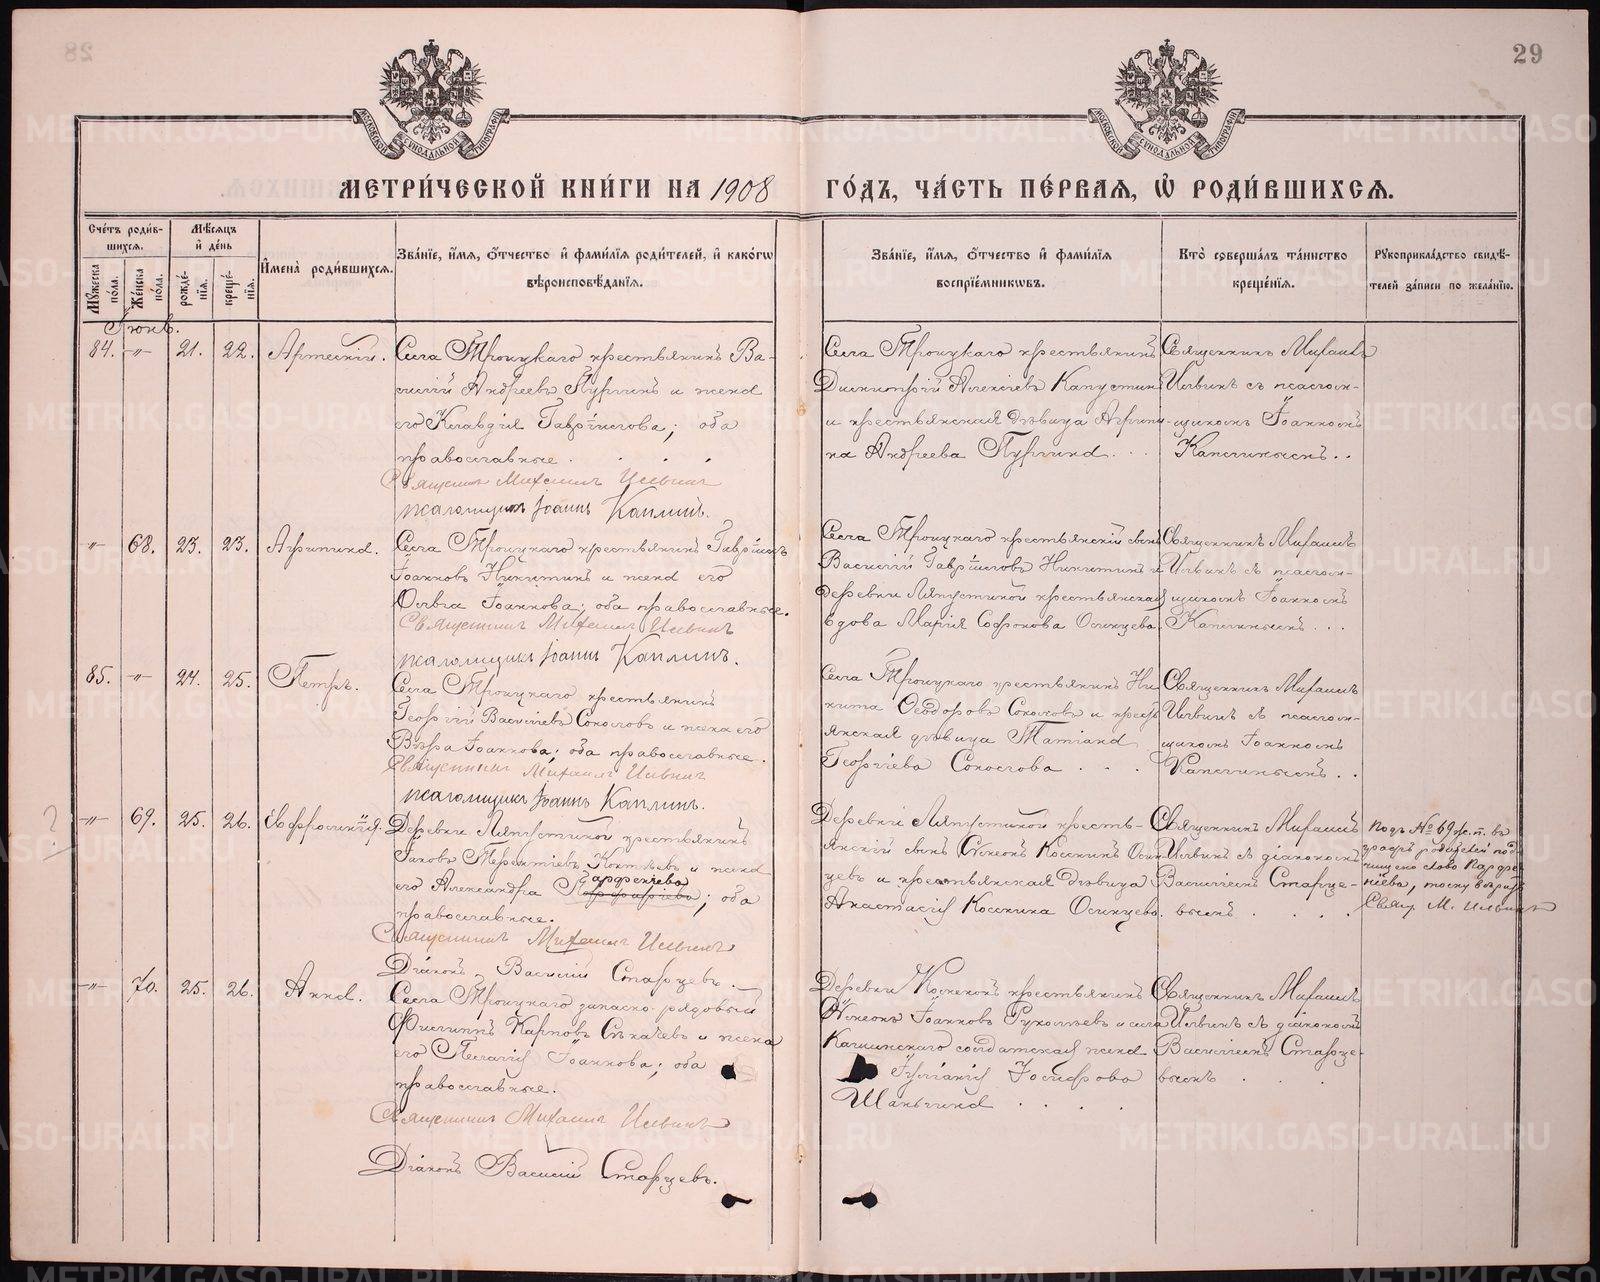 29
МОСКОВСКОЙ СѴНОДАЛЬНОЙ ТИПОГРАФІИ
МОСКОВСКОЙ СѴНОДАЛЬНОЙ ТИПОГРАФІИ
МЕТРИ́ЧЕСКОЙ КНИ́ГИ НА 1908
ГО́ДЪ, ЧА́СТЬ ПЕ́РВАЯ, Ѡ РОДИ́ВШИХСЯ.
Сче́тъ роди́в-
шихся.
Мѣ́сяцъ
и де́нь
Му́жеска по́ла.
Же́нска по́ла.
рожде́-
нїя.
креще́-
нїя.
Имена̀ роди́вшихся.
Зва́нїе, и́мя, о́тчество и фами́лїя роди́телей, и како́гѡ
вѣроисповѣ́данїя.
Зва́нїе, и́мя, о́тчество и фами́лїя
воспрїе́мникѡвъ.
Кто̀ соверша́лъ та́инство
креще́нїя.
Рꙋкоприкла́дство свидѣ́-
телей за́писи по жела́нїю.
Іюнь.
84. -"- 21. 22. Артемій.
Села Троицкаго крестьянинъ Ва-
силій Андреевъ Пургинъ и жена
его Клавдія Гавріилова; оба
православные.
Священникъ Михаилъ Ильинъ
псаломщикъ Іоаннъ Каплинъ.
Села Троицкаго крестьянинъ
Димитрій Алексіевъ Капустинъ
и крестьянская дѣвица Агрипи-
на Андреева Пургина.
Священникъ Михаилъ
Ильинъ съ псалом-
щикомъ Іоанномъ
Каплинымъ.
-"- 68. 23. 23. Агрипина.
Села Троицкаго крестьянинъ Гавріилъ
Іоанновъ Никитинъ и жена его
Ольга Іоаннова; оба православные.
Священникъ Михаилъ Ильинъ
псаломщикъ Іоаннъ Каплинъ.
Села Троицкаго крестьянскій сынъ
Василій Гавріиловъ Никитинъ и
деревни Ляпустиной крестьянская
вдова Марія Софронова Осинцева.
Священникъ Михаилъ
Ильинъ съ псалом-
щикомъ Іоанномъ
Каплинымъ.
85. -"- 24. 25. Петръ.
Села Троицкаго крестьянинъ
Георгій Васильевъ Соколовъ и жена его
Вѣра Іоаннова; оба православные.
Священникъ Михаилъ Ильинъ
псаломщикъ Іоаннъ Каплинъ.
Села Троицкаго крестьянинъ Ни
кита Ѳеодоровъ Соколовъ и кресть
янская дѣвица Татіана
Георгіева Соколова.
Священникъ Михаилъ
Ильинъ съ псалом-
щикомъ Іоанномъ
Каплинымъ.
-"- 69. 25. 26. Евфросинія.
Деревни Ляпустиной крестьянинъ
Іаковъ Терентіевъ и жена
его Александра Парфеніева; оба
православные.
Священникъ Михаилъ Ильинъ
Діаконъ Василій Старцевъ.
Деревни Ляпустиной кресть-
янскій сынъ Сѵмеонъ Косминъ Осин
цевъ и крестьянская дѣвица
Анастасія Космина Осинцева.
Священникъ Михаилъ
Ильинъ съ діакономъ
Василіемъ Старце-
вымъ.
Подъ № 69 ж. п. въ
графѣ родителей под
чищено слово Парфе-
ніева,
Свящ. М. Ильинъ
-"- 70. 25. 26. Анна.
Села Троицкаго запасно-рядовый
Филиппъ Карповъ и жена
его Пелагія Іоаннова; оба
православные.
Священникъ Михаилъ Ильинъ
Діаконъ Василій Старцевъ.
Деревни крестьянинъ
Сѵмеонъ Іоанновъ и села
солдатская жена
Іуліанія Іосифова
Шаньгина.
Священникъ Михаилъ
Ильинъ съ діакономъ
Василіемъ Старце-
вымъ
METRIKI.GASO-URAL.RU